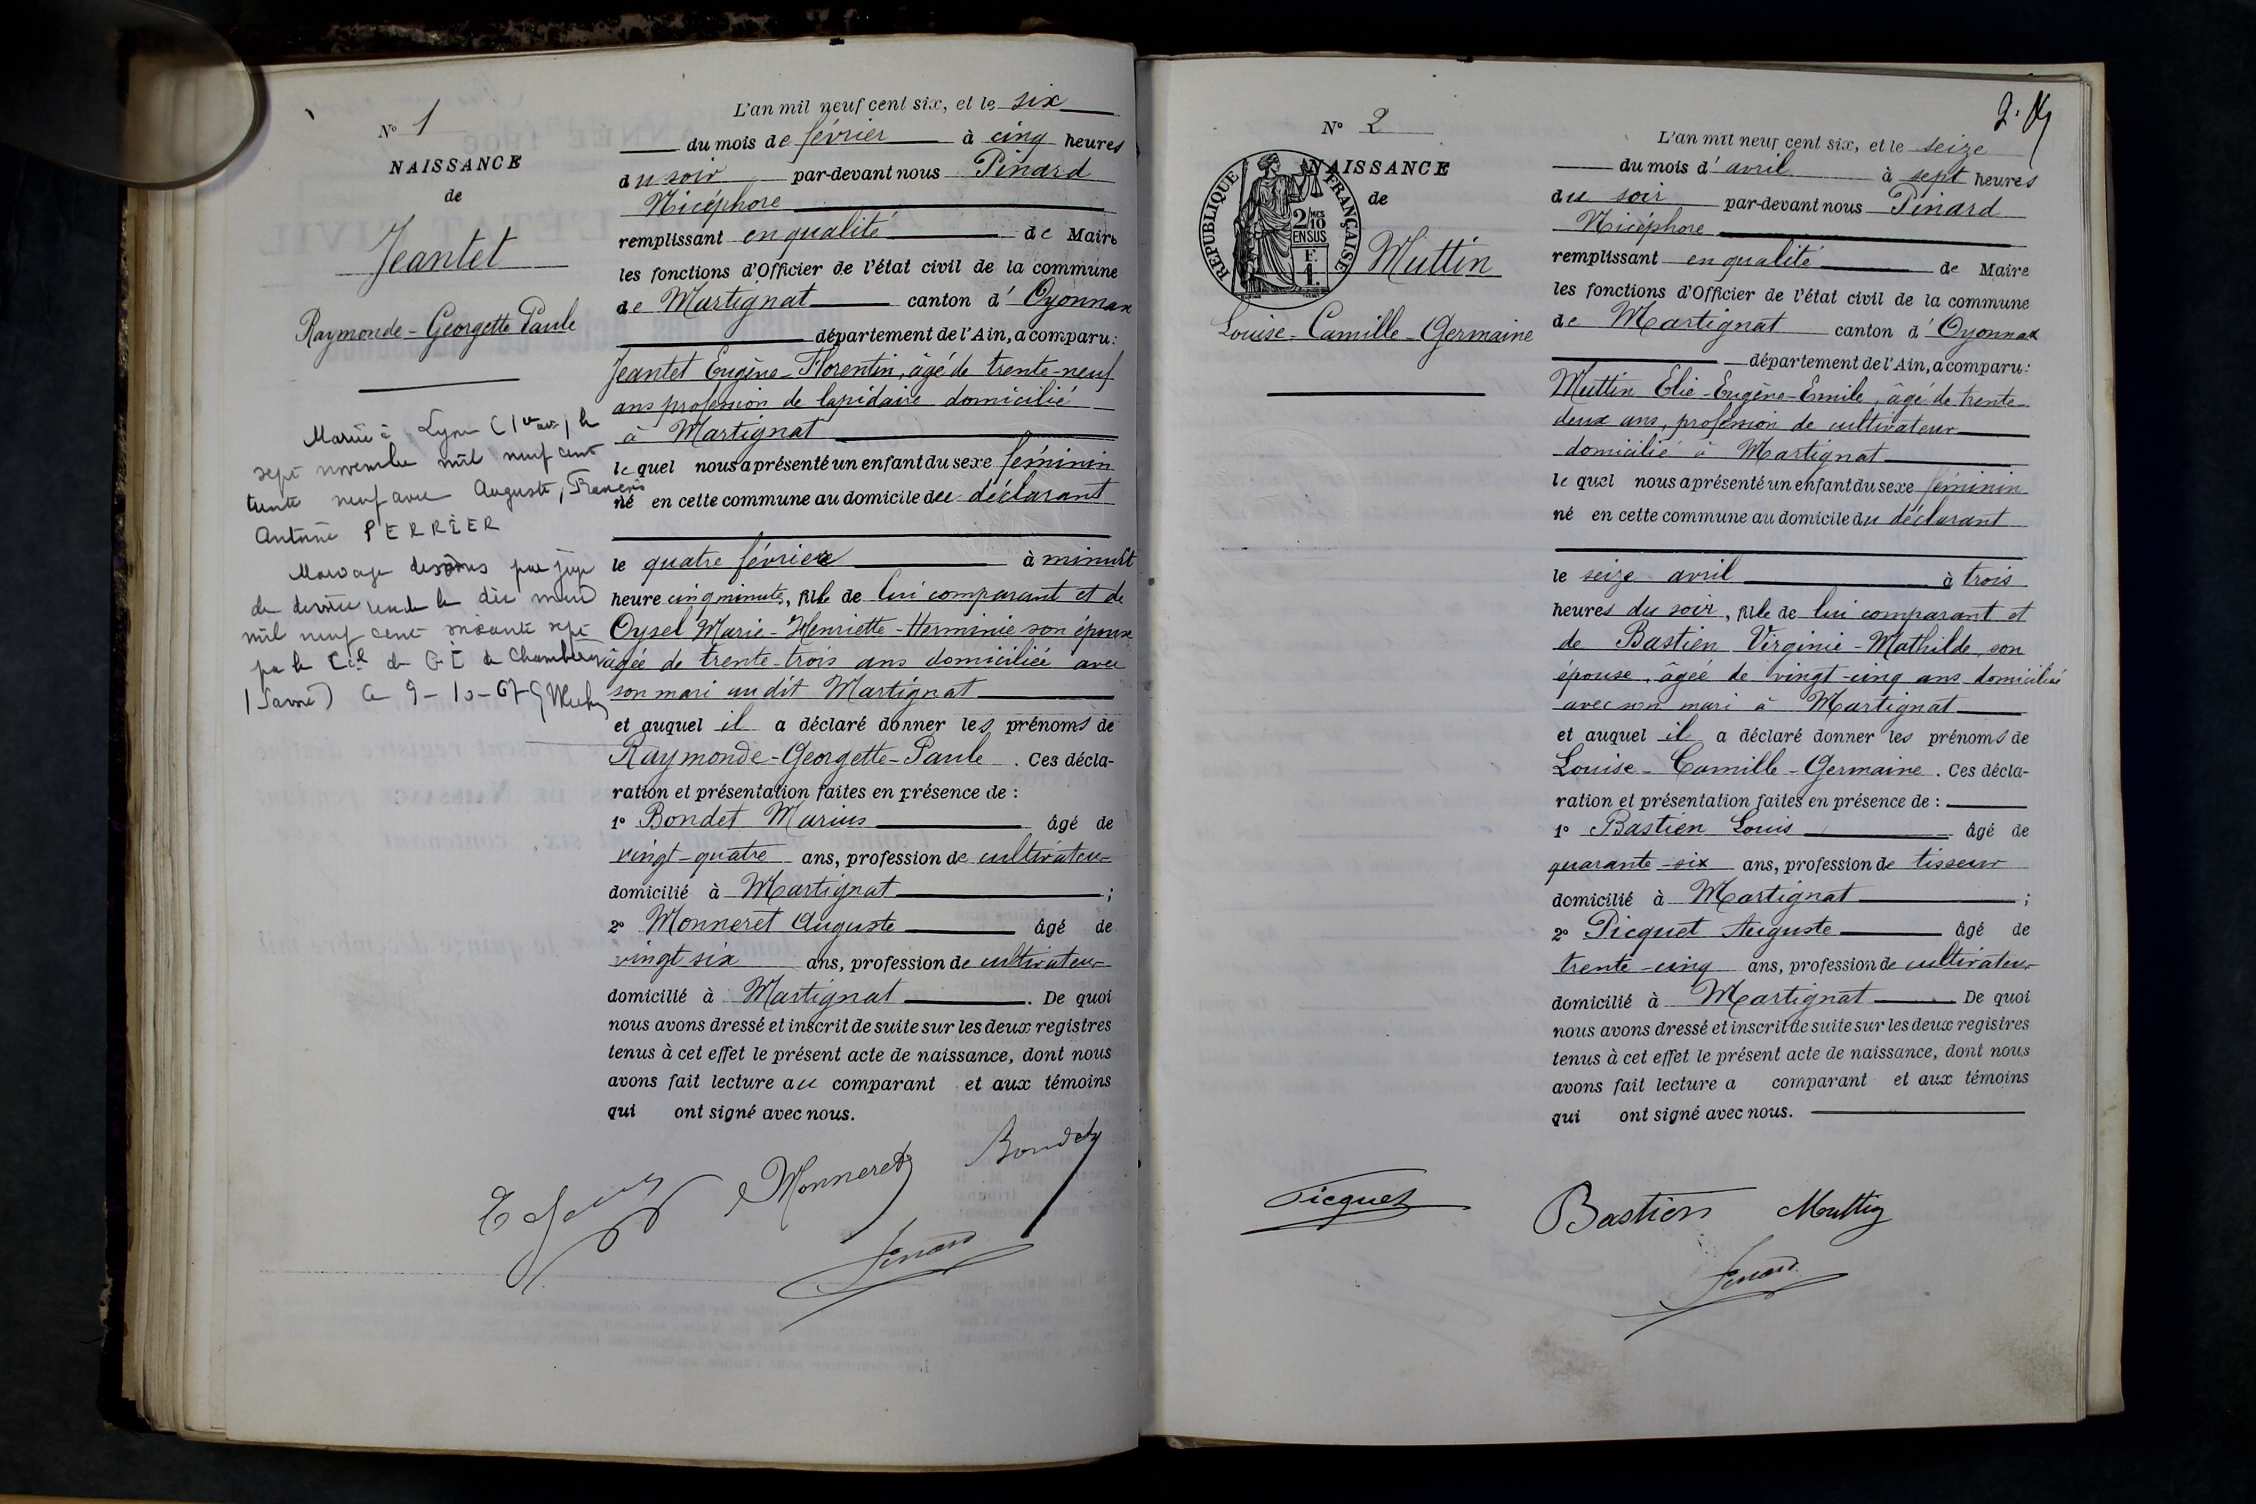 N° 1
NAISSANCE
de
Jeantet
Raymonde-Georgette Paule
Mariée à Lyon (1er arr) le
sept novembre mil neuf cent
trente neuf avec Auguste, François
Antoine PERRIER
Mariage dissous par jugt
de divorce rendu le dix mars
mil neuf cent soixante sept
par le T. de G. I. de Chambéry
(Savoie) le 9-10-67
L'an mil neuf cent six, et le six
du mois de février à cinq heures
du soir par-devant nous Pinard
Nicéphore
remplissant en qualité de Maire
les fonctions d'Officier de l'état civil de la commune
de Martignat canton d'Oyonnax
département de l'Ain, a comparu:
Jeantet Eugène-Florentin, âgé de trente-neuf
ans profession de lapidaire domicilié
à Martignat
lequel nous a présenté un enfant du sexe féminin
né en cette commune au domicile du déclarant
le quatre février à minuit
heure cinq minutes, fille de lui comparant et de
Oysel Marie-Henriette-Herminie son épouse
âgée de trente-trois ans domiciliée avec
son mari audit Martignat
et auquel il a déclaré donner les prénoms de
Raymonde-Georgette-Paule. Ces décla-
ration et présentation faites en présence de :
1° Bondet Marius âgé de
vingt-quatre ans, profession de cultivateur
domicilié à Martignat ;
2° Monneret Auguste âgé de
vingt six ans, profession de cultivateur
domicilié à Martignat. De quoi
nous avons dressé et inscrit de suite sur les deux registres
tenus à cet effet le présent acte de naissance, dont nous
avons fait lecture au comparant et aux témoins
qui ont signé avec nous.
Bondet
Monneret
Pinard
2.
N° 2
NAISSANCE
de
REPUBLIQUE FRANÇAISE
2/10 EN SUS
F. 1.
Muttin
Louise-Camille-Germaine
L'an mil neuf cent six, et le seize
du mois d'avril à sept heures
du soir par-devant nous Pinard
Nicéphore
remplissant en qualité de Maire
les fonctions d'Officier de l'état civil de la commune
de Martignat canton d'Oyonnax
département de l'Ain, a comparu:
Muttin Elie-Eugène-Emile, âgé de trente
deux ans, profession de cultivateur
domicilié à Martignat
lequel nous a présenté un enfant du sexe féminin
né en cette commune au domicile du déclarant
le seize avril à trois
heures du soir, fille de lui comparant et
de Bastien Virginie-Mathilde, son
épouse, âgée de vingt-cinq ans domiciliée
avec son mari à Martignat
et auquel il a déclaré donner les prénoms de
Louise-Camille-Germaine. Ces décla-
ration et présentation faites en présence de :
1° Bastien Louis âgé de
quarante-six ans, profession de tisseur
domicilié à Martignat ;
2° Picquet Auguste âgé de
trente-cinq ans, profession de cultivateur
domicilié à Martignat De quoi
nous avons dressé et inscrit de suite sur les deux registres
tenus à cet effet le présent acte de naissance, dont nous
avons fait lecture a comparant et aux témoins
qui ont signé avec nous.
Picquet Bastien Muttin
Pinard